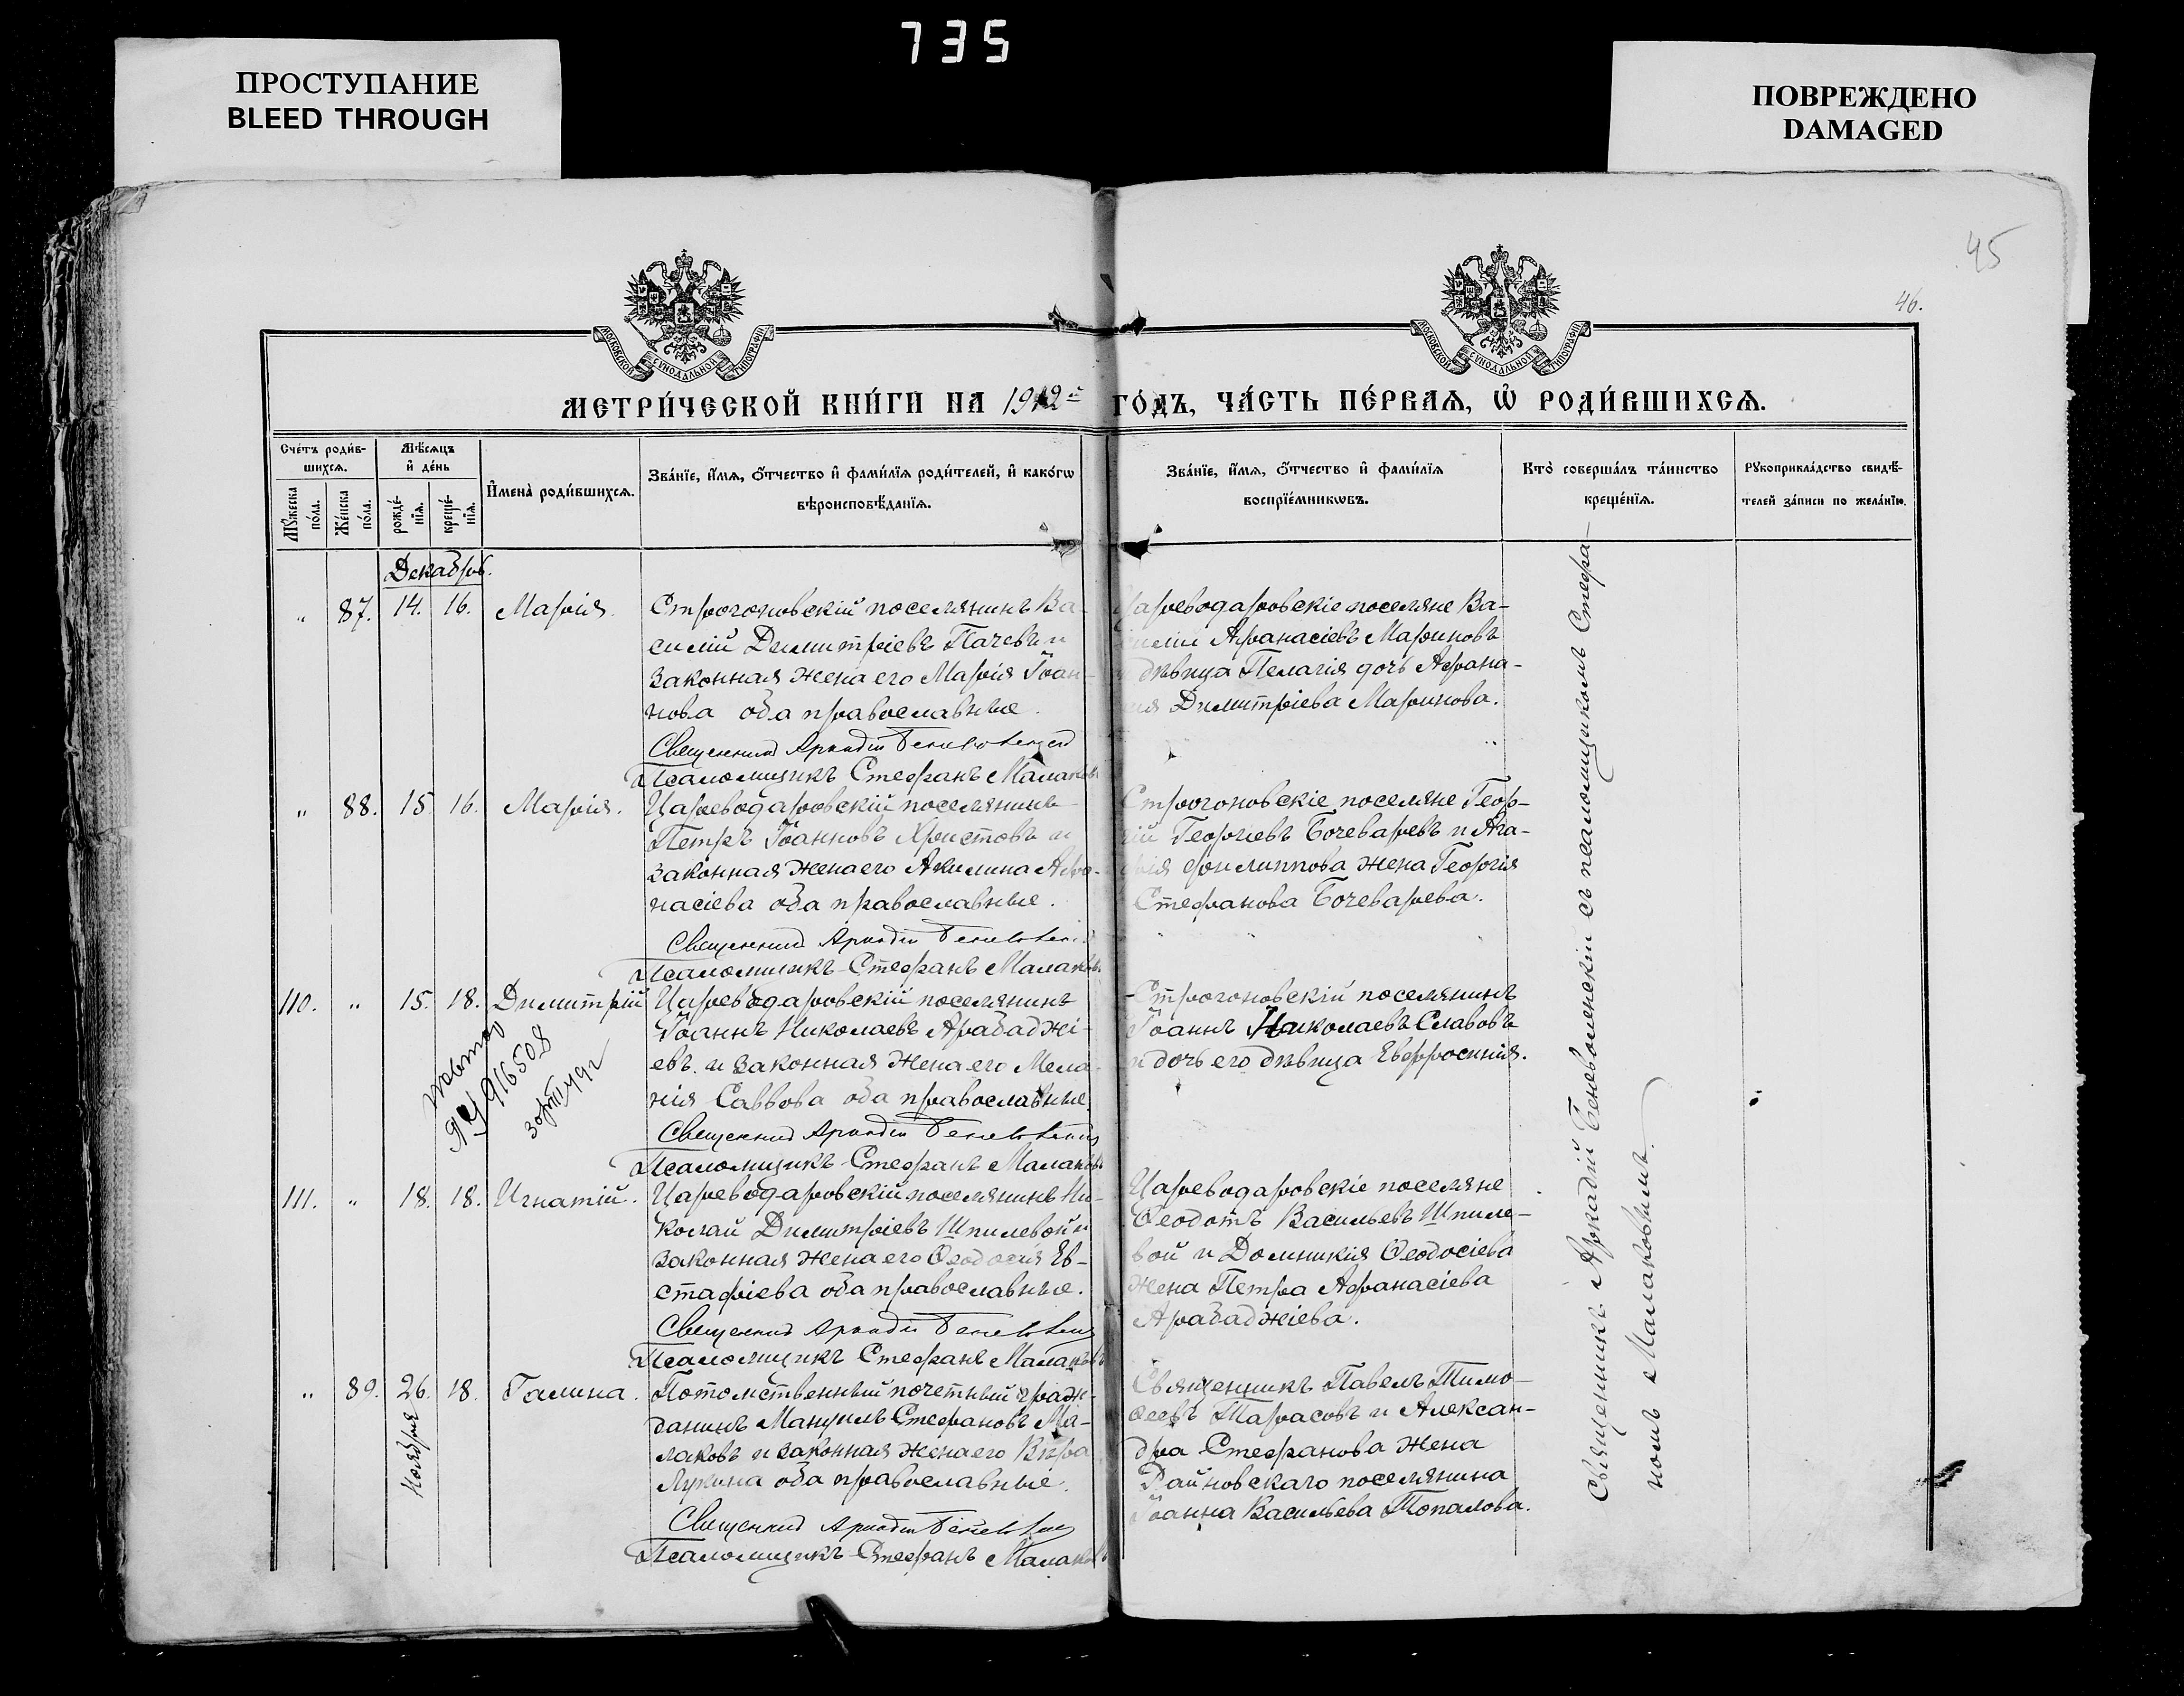 735
ПРОСТУПАНИЕ
BLEED THROUGH
ПОВРЕЖДЕНО
DAMAGED
45
46.
МОСКОВСКОЙ СѴНОДАЛЬНОЙ ТИПОГРАФІИ
МОСКОВСКОЙ СѴНОДАЛЬНОЙ ТИПОГРАФІИ
МЕТРИ́ЧЕСКОЙ КНИ́ГИ НА 1912й ГО́ДЪ, ЧА́СТЬ ПЕ́РВАЯ, Ѡ҆ РОДИ́ВШИХСЯ.
Сче́тъ роди́в-
шихся.
Мѣ́сяцъ
и҆ де́нь
Му́жеска
по́ла.
Же́нска
по́ла.
рожде́-
нїя.
креще́-
нїя.
И҆мена̀ роди́вшихся.
Зва́нїе, и҆́мя, ѻ҆́тчество и҆ фами́лїя роди́телей, и҆ како́гѡ
вѣроисповѣ́данїя.
Зва́нїе, и҆́мя, ѻ҆́тчество и҆ фами́лїя
воспрїе́мникѡвъ.
Кто̀ соверша́лъ та́инство
креще́нїя.
Рꙋкоприкла́дство свидѣ́-
телей за́писи по жела́нїю.
Декабрь.
" 87. 14. 16. Марія.
Строгоновскій поселянинъ Ва-
силій Димитріевъ Пачевъ и
законная жена его Марія Іоан-
нова оба православные.
Священникъ Аркадій Беневоленскій
Псаломщикъ Стефанъ Малаковъ
Цареводаровскіе поселяне Ва-
силій Афанасіевъ Мариновъ
и дѣвица Пелагія дочь Афана-
сія Димитріева Маринова.
" 88. 15. 16. Марія.
Цареводаровскій поселянинъ
Петръ Іоанновъ Христовъ и
законная жена его Акилина Афа-
насіева оба православные.
Священникъ Аркадій Беневоленскій
Псаломщикъ Стефанъ Малаковъ
Строгоновскіе поселяне Геор-
гій Георгіевъ Бочеваревъ и Ага-
фія Филиппова жена Георгія
Стефанова Бочеварева.
110. " 15. 18. Димитрій
Цареводаровскій поселянинъ
Іоаннъ Николаевъ Арабаджі-
евъ и законная жена его Мела-
нія Саввова оба православные.
Священникъ Аркадій Беневоленскій
Псаломщикъ Стефанъ Малаковъ
Строгоновскій поселянинъ
Іоаннъ Николаевъ Славовъ
и дочь его дѣвица Евфросинія.
916508
111. " 18. 18. Игнатій.
Цареводаровскій поселянинъ Ни-
колай Димитріевъ Шпилевой и
законная жена его Ѳеодосія Ев-
стафіева оба православные.
Священникъ Аркадій Беневоленскій
Псаломщикъ Стефанъ Малаковъ
Цареводаровскіе поселяне
Ѳеодотъ Васильевъ Шпиле-
вой и Домникія Ѳеодосіева
жена Петра Афанасіева
Арабаджіева.
" 89. 26. 18. Галина.
Ноября
Потомственный почетный граж-
данинъ Мануилъ Стефановъ Ма-
лаковъ и законная жена его Вѣра
Лукина оба православные.
Священникъ Аркадій Беневоленскій
Псаломщикъ Стефанъ Малаковъ
Священникъ Павелъ Тимо-
ѳеевъ Тарасовъ и Алексан-
дра Стефанова жена
Райновскаго поселянина
Іоанна Васильева Топалова.
Священникъ Аркадій Беневоленскій съ псаломщикомъ Стефа-
номъ Малаковымъ.